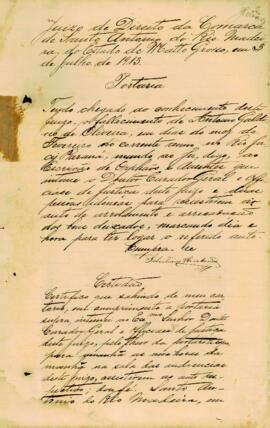 Juizo de Direito da Comarca
de Santo Antonio do Rio Madei
ra, do Estado de Matto Grosso, em 3
de Julho de 1913.
Portaria
Tendo chegado ao conhecimento deste
juizo, o fallecimento de Antonio Galdi
no de Oliveira, em dias do mez de
Fevereiro do corrente anno, no Rio Ja
cy Paraná, mando ao Sr.
Escrivão de Orphãos e Ausentes que
intime o Doutor Curador Geral e Offi
ciaes de justiça deste juizo e
pessôas para assistirem ao
auto de arrolamento e arrecadação
dos bens deixados, marcando dia e
hora para ter logar o referido auto.
Cumpra-se
Certidão
Certifico que sahindo de meu car
torio, em cumprimento a portaria
supra intimei ao Exmo Senhor Doutor
Curador Geral e Officiaes de justiça
deste juizo, pelo theor da portaria
para amanhã as nove horas da
manhã na sala das audiencias
deste juizo, assistirem ao auto re
; dou fé. Santo An
tonio do Rio Madeira, em